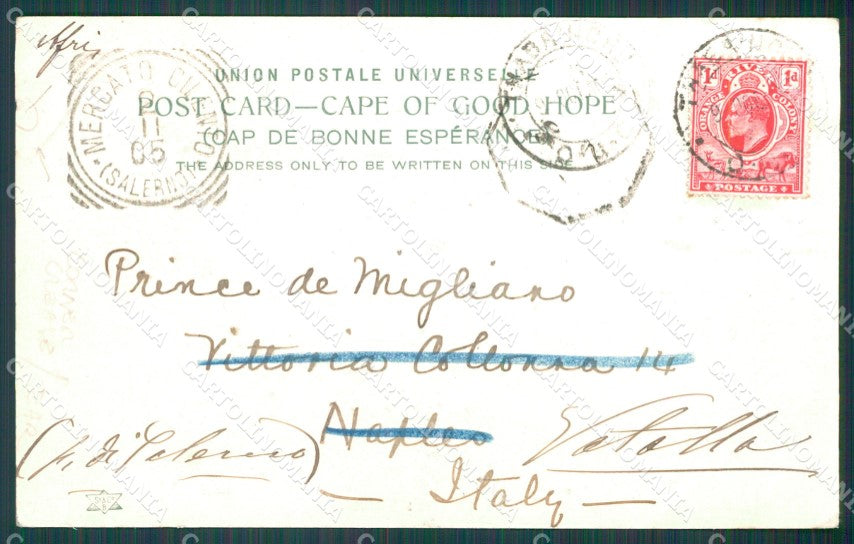 Affis
UNION POSTALE UNIVERSELLE
POST CARD—CAPE OF GOOD HOPE
(CAP DE BONNE ESPÉRANCE)
THE ADDRESS ONLY TO BE WRITTEN ON THIS SIDE
MERCATO CILENTO
9
11
05
(SALERNO)
THABA
1d 1d
ORANGE RIVER COLONY
POSTAGE
Prince de Migliano
Vittoria Collonna 14
Naples
Vatolla
(p. di Salerno)
— Italy —
CARTOLINOMANIA